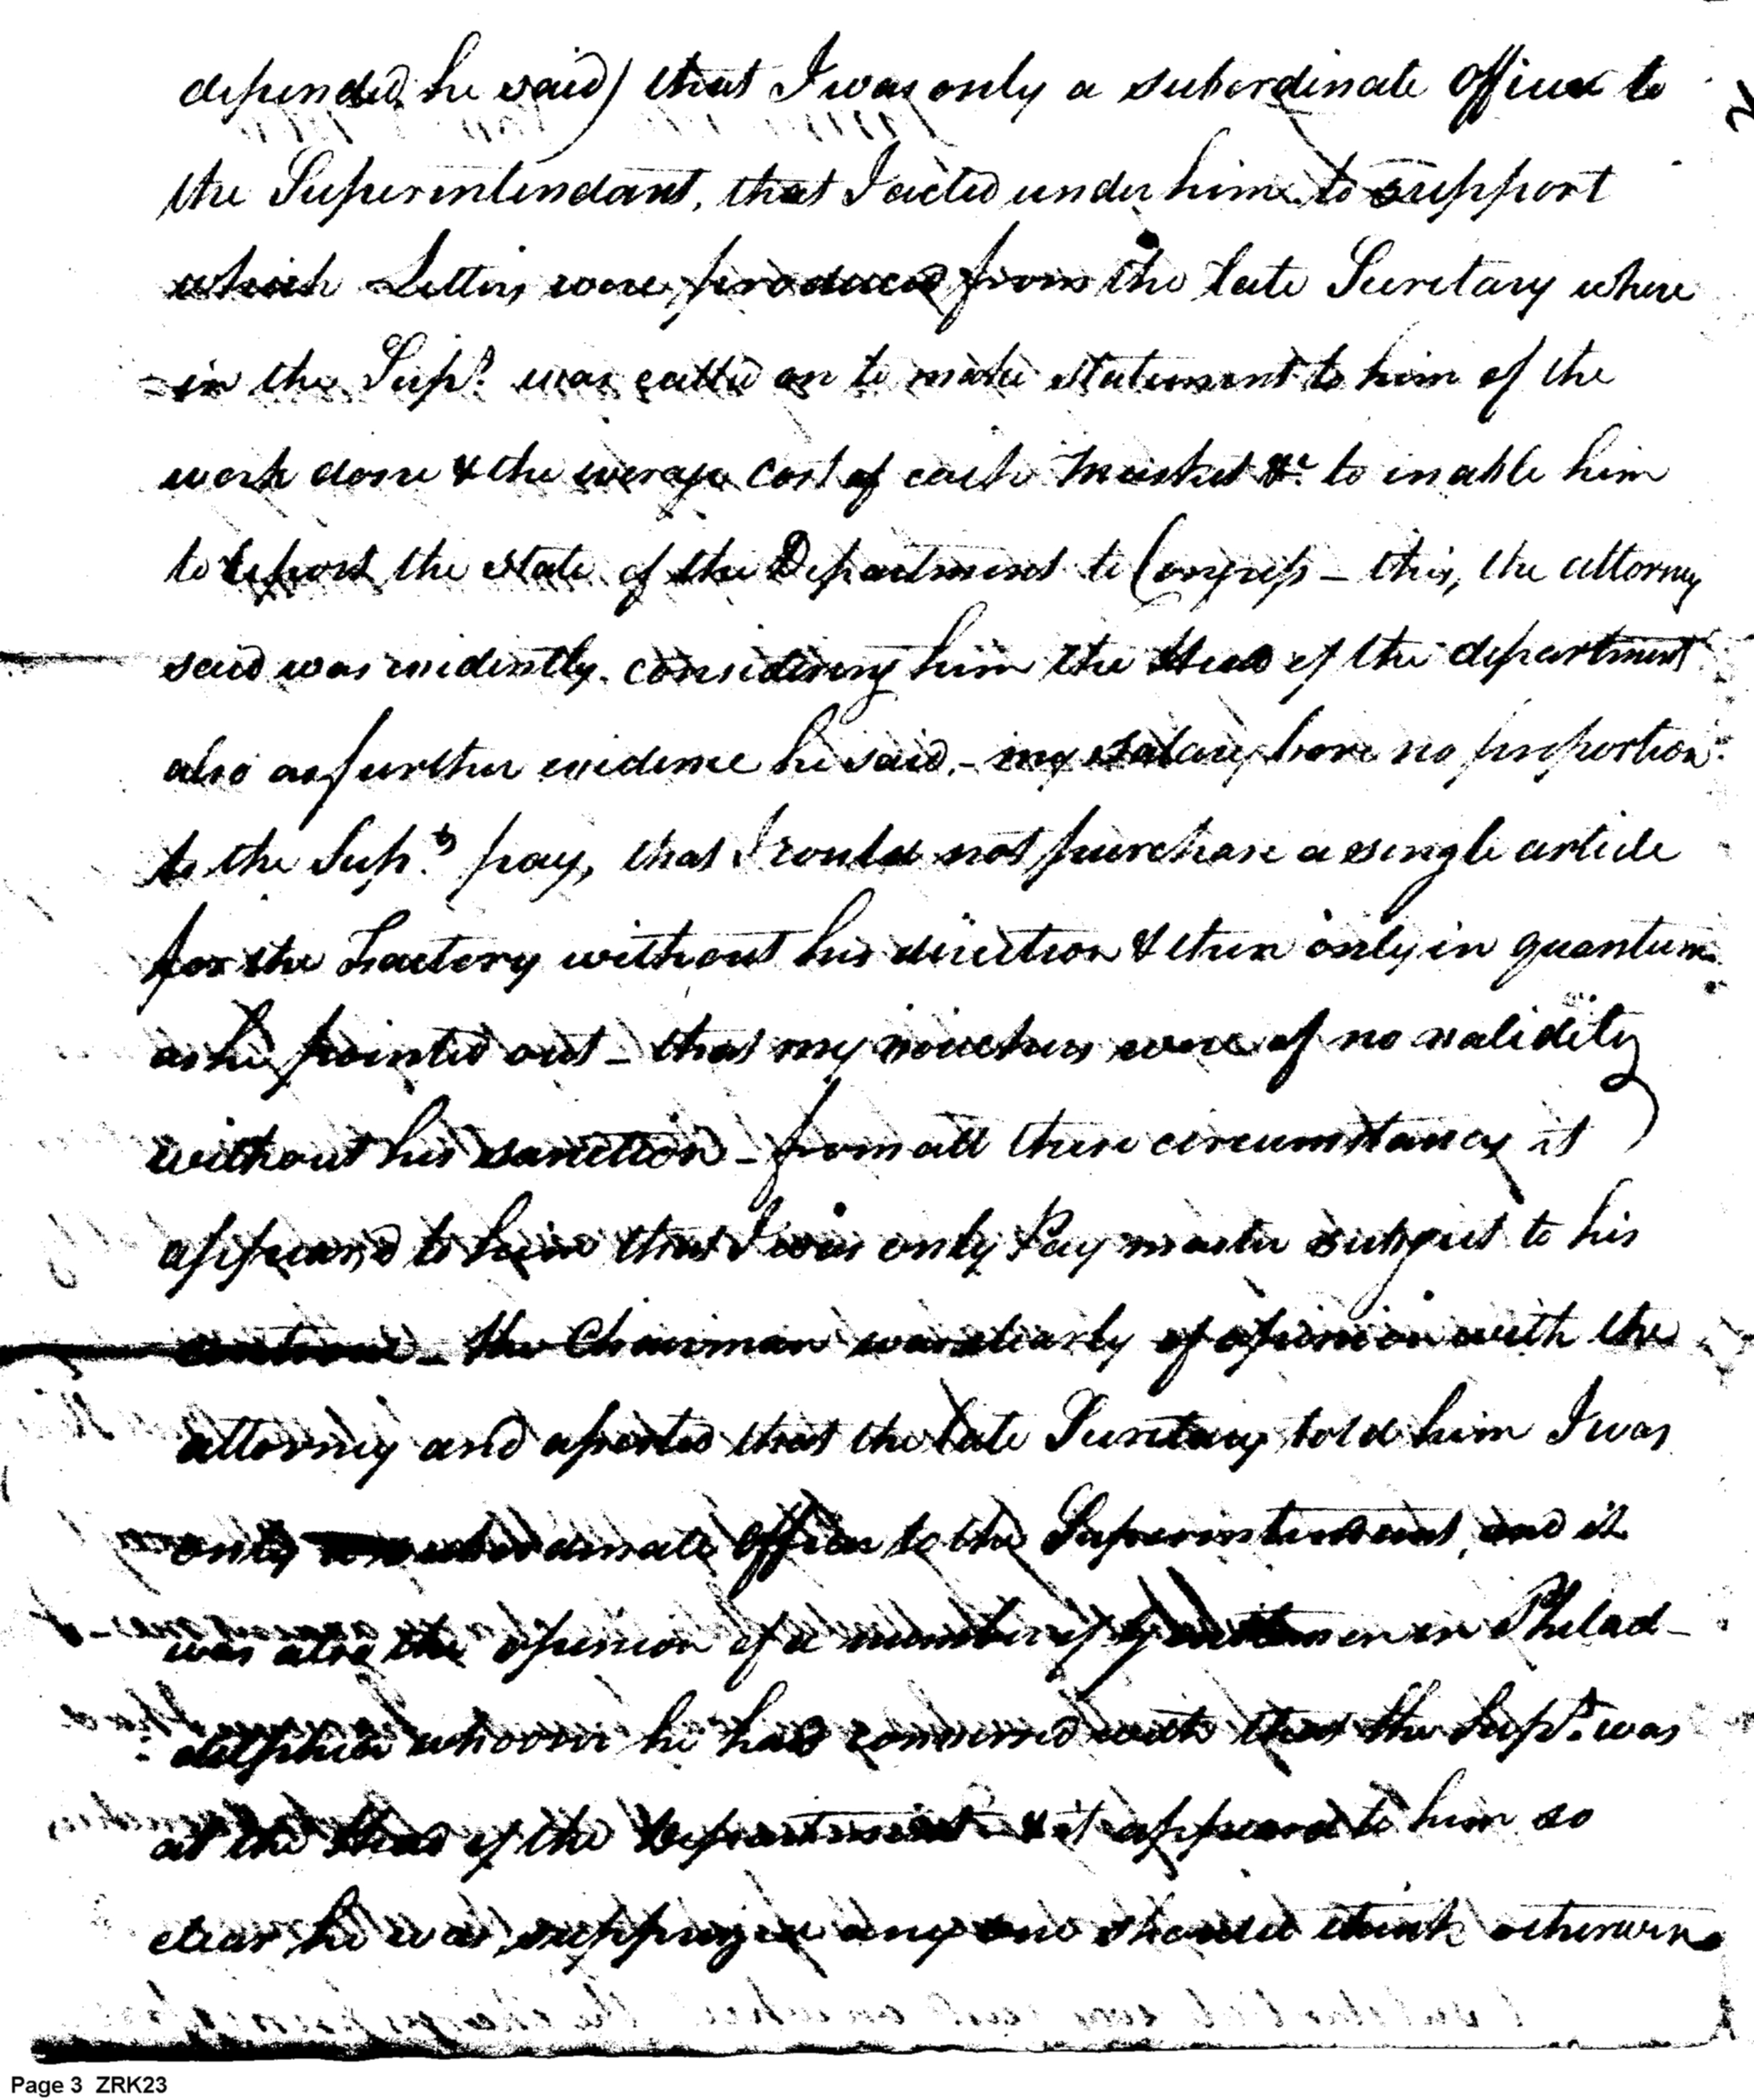 depended, he said) that I was only a subordinate officer to
the Superintendant, that I acted under him to support
which Letters were produced from the late Secretary where
-in the Supt. was called on to make statement to him of the
work done & the average cost of each Musket &c to inable him
to report the state of the Department to Congress - this, the attorney
said was evidently considering him the Head of the department
also as further evidence he said, - my salary bore no proportion
to the Supts. pay, that I could not purchase a single article
for the Factory without his direction & then only in quantum
as he pointed out - that my vouchers were of no validity
without his sanction - from all these circumstances it
appeared to him that I was only Pay master subject to his
controul - the Chairman was clearly of opinion with the
attorney and asserted that the late Secretary told him I was
only subordinate officer to the Superintendant, and it
was also the opinion of a number of gentlemen in Philad-
delphia whoom he had conversed with that the Supt. was
at the Head of the Department - & it appeared to him so
clear he was supprized any one should think otherwise
Page 3 ZRK23